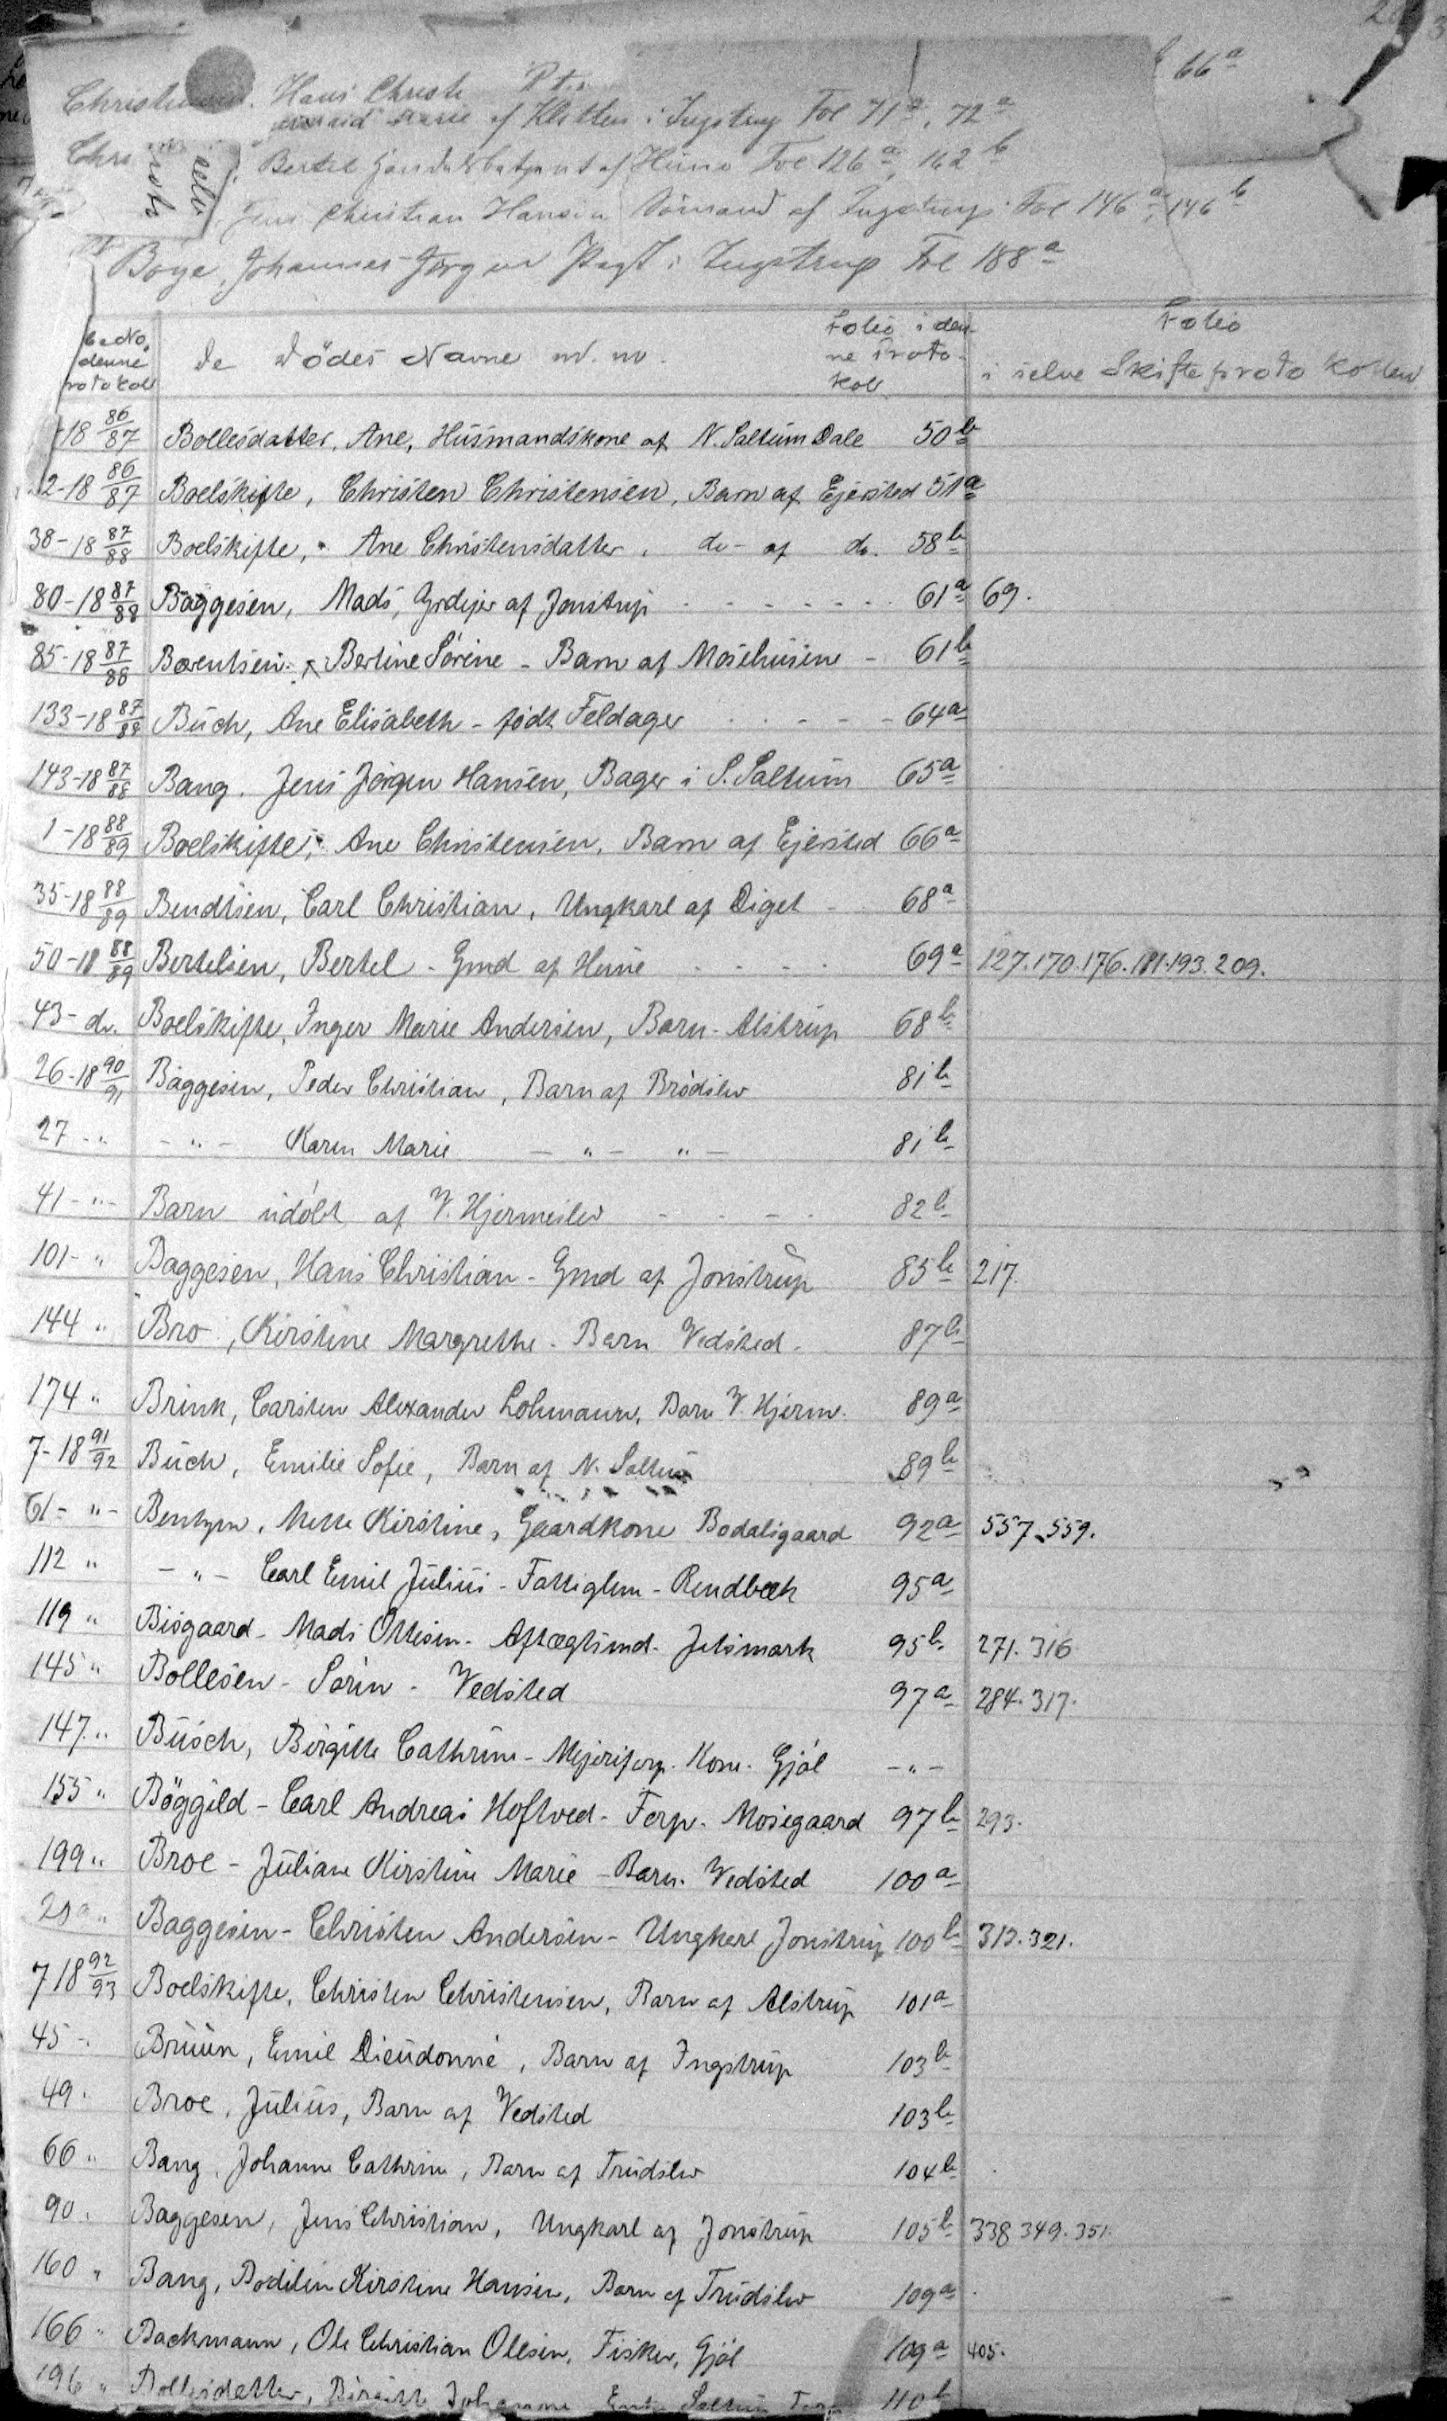 66a
Hans Christ
Marie af Kletten i Ingstrup Fol 71a, 72a
Chr
Bertel af Hune Fol 126a, 162b
Jens Christian Hansen Sömand af Ingstrup Fol 146a, 146b
Boye, Johannes Jörgen i Ingstrup Fol 188a
De Dödes Navne m.m. Folio i denne Protokol Folio i selve Skifteprotokollen
-18 86/87 Bollesdatter, Ane, Husmandskone af N. Saltum Dale 50b
2-18 86/87 Boelskifte, Christen Christensen, Barn af Ejersted 51a
38-18 87/88 Boelskifte, Ane Christensdatter, do- af do. 58b
80-18 87/88 Baggesen, Mads, Grdejer af Jonstrup 61a 69.
85-18 87/88 Bærentsen, Bertine Sörine - Barn af Mosehusene - 61b
133-18 87/88 Buch, Ane Elisabeth - födt Feldager 64a
143-18 87/88 Bang. Jens Jörgen Hansen, Bager i S. Saltum 65a
1-18 88/89 Boelskifte, Ane Christensen, Barn af Ejersted 66a
35-18 88/89 Bendtsen, Carl Christian, Ungkarl af Diget 68a
50-18 88/89 Bertelsen, Bertel - Gmd af Hune 69a 127.170.176.181.193.209.
43- do. Boelskifte, Inger Marie Andersen, Barn - Alstrup 68b
26-18 90/91 Baggesen, Peder Christian, Barn af Brödslev 81b
27 - " - " - Karen Marie - " - " - 81b
41 - " - Barn udöbt af V. Hjermeslev 82b
101- " Baggesen, Hans Christian - Gmd af Jonstrup 85b 217.
144 " Bro, Kirstine Margrethe - Barn Vedsted - 87b
174 " Brink, Carsten Alexander Lohmann, Barn V. Hjerm. 89a
7-18 91/92 Buch, Emilie Sofie, Barn af N. Saltum 89b
61- " - Bentzen, Mette Kirstine, Gaardkone Bodalsgaard 92a 557.559.
112 " - " - Carl Emil Julius - Fattiglem - Rendbæk 95a
119 " Bisgaard - Mads Ottesen - Aftægtsmd - Jetsmark 95b 271.316
145 " Bollesen - Sören - Vedsted 97a 284.317.
147 " Busch, Birgitte Cathrine - Mejeriforp. Kone - Gjöl - " -
155 " Böggild - Carl Andreas Hoftved - Forp. Mosegaard 97b 293.
199 " Broe - Juliane Kirstine Marie - Barn. Vedsted 100a
Baggesen - Christen Andersen - Ungkarl Jonstrup 100b 312.321.
7 18 92/93 Boelskifte, Christen Christensen, Barn af Alstrup 101a
45 - Bruun, Emil Dieudonné, Barn af Ingstrup 103b
49 " Broe, Julius, Barn af Vedsted 103b
66 " Bang, Johanne Cathrine, Barn af Trudslev 104b
90 " Baggesen, Jens Christian, Ungkarl af Jonstrup 105b 338 349.351.
160 " Bang, Bodiline Kirstine Hansen, Barn af Trudslev 109a
166 " Backmann, Ole Christian Olesen, Fisker, Gjöl 109a 405.
196 " Bollesdatter, Birgitte Johanne Enke Saltum 110b